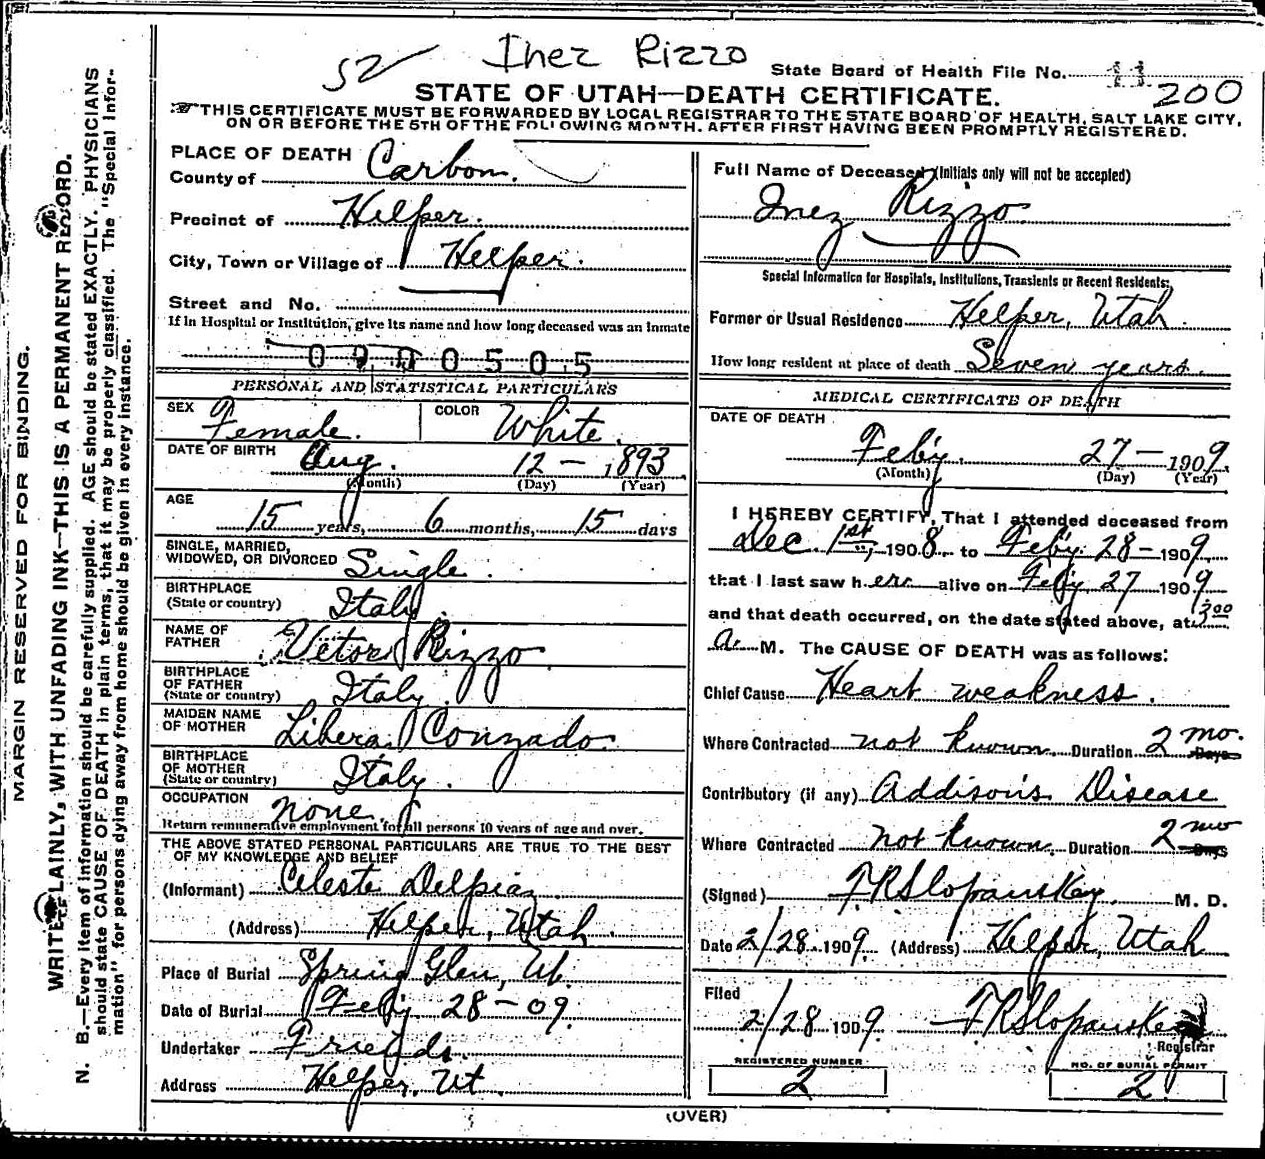 52 Inez Rizzo
State Board of Health File No. 11
200
STATE OF UTAH—DEATH CERTIFICATE.
THIS CERTIFICATE MUST BE FORWARDED BY LOCAL REGISTRAR TO THE STATE BOARD OF HEALTH, SALT LAKE CITY,
ON OR BEFORE THE 5TH OF THE FOLLOWING MONTH, AFTER FIRST HAVING BEEN PROMPTLY REGISTERED.
MARGIN RESERVED FOR BINDING.
WRITE PLAINLY, WITH UNFADING INK—THIS IS A PERMANENT RECORD.
N. B.—Every item of information should be carefully supplied. AGE should be stated EXACTLY. PHYSICIANS
should state CAUSE OF DEATH in plain terms, that it may be properly classified. The "Special Infor-
mation" for persons dying away from home should be given in every instance.
PLACE OF DEATH
County of Carbon.
Precinct of Helper.
City, Town or Village of Helper.
Street and No.
If in Hospital or Institution, give its name and how long deceased was an inmate
0900505
PERSONAL AND STATISTICAL PARTICULARS
SEX Female. COLOR White.
DATE OF BIRTH Aug. 12 — 1893
(Month) (Day) (Year)
AGE
15 years, 6 months, 15 days
SINGLE, MARRIED,
WIDOWED, OR DIVORCED Single.
BIRTHPLACE
(State or country) Italy
NAME OF
FATHER Victor Rizzo.
BIRTHPLACE
OF FATHER
(State or country) Italy.
MAIDEN NAME
OF MOTHER Libera Conzado.
BIRTHPLACE
OF MOTHER
(State or country) Italy.
OCCUPATION none.
Return remunerative employment for all persons 10 years of age and over.
THE ABOVE STATED PERSONAL PARTICULARS ARE TRUE TO THE BEST
OF MY KNOWLEDGE AND BELIEF
(Informant) Celeste Delpiaz
(Address) Helper, Utah.
Place of Burial Spring Glen, Ut.
Date of Burial Feby 28—09.
Undertaker Friends.
Address Helper, Ut.
Full Name of Deceased (Initials only will not be accepted)
Inez Rizzo.
Special Information for Hospitals, Institutions, Transients or Recent Residents:
Former or Usual Residence Helper, Utah.
How long resident at place of death Seven years.
MEDICAL CERTIFICATE OF DEATH
DATE OF DEATH
Feby. 27— 1909.
(Month) (Day) (Year)
I HEREBY CERTIFY, That I attended deceased from
Dec. 1st, 1908, to Feby. 28— 1909,
that I last saw her alive on Feby 27 1909
and that death occurred, on the date stated above, at 3.00
a. M. The CAUSE OF DEATH was as follows:
Chief Cause Heart weakness.
Where Contracted not known. Duration 2 mo. Days
Contributory (if any) Addison's Disease
Where Contracted not known. Duration 2 mo Days
(Signed) F R Slopanskey. M. D.
Date 2/28. 1909. (Address) Helper, Utah
Filed
2/28 1909. F R Slopanskey
Registrar
REGISTERED NUMBER
2
NO. OF BURIAL PERMIT
2.
(OVER)